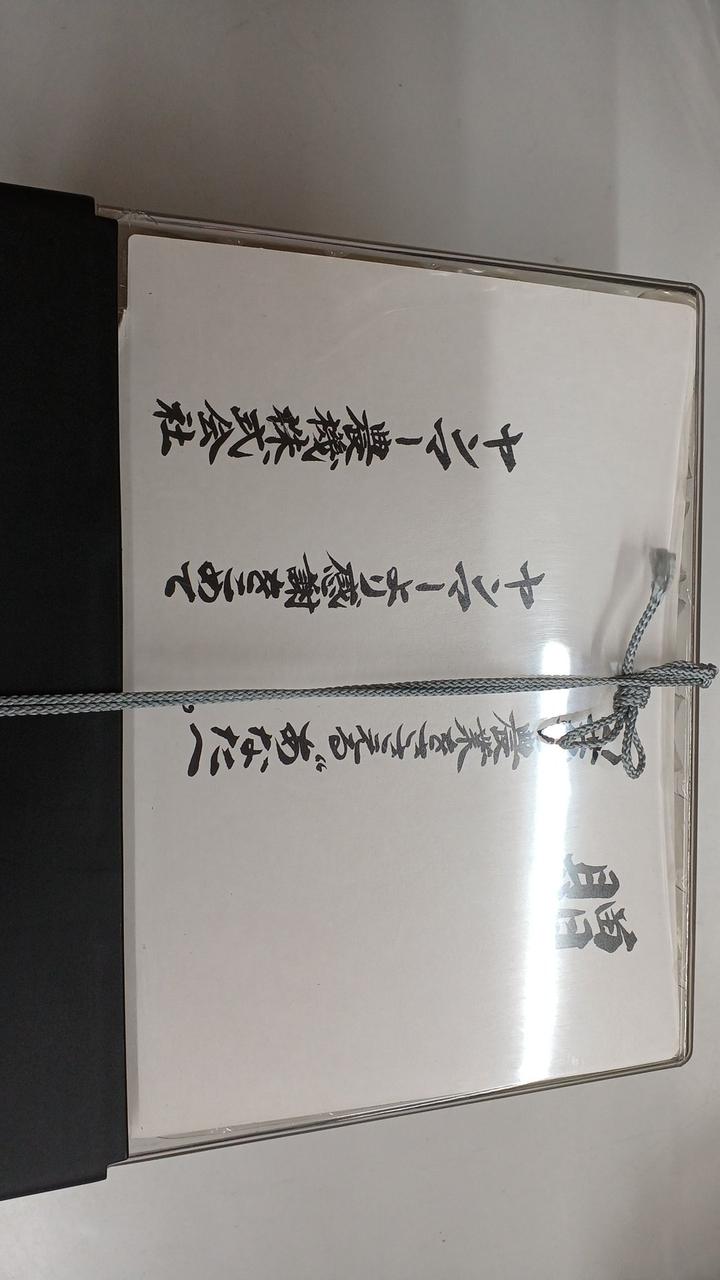 贈
農業をささえる〝あなた〟へ
ヤンマーより感謝をこめて
ヤンマー農機株式会社